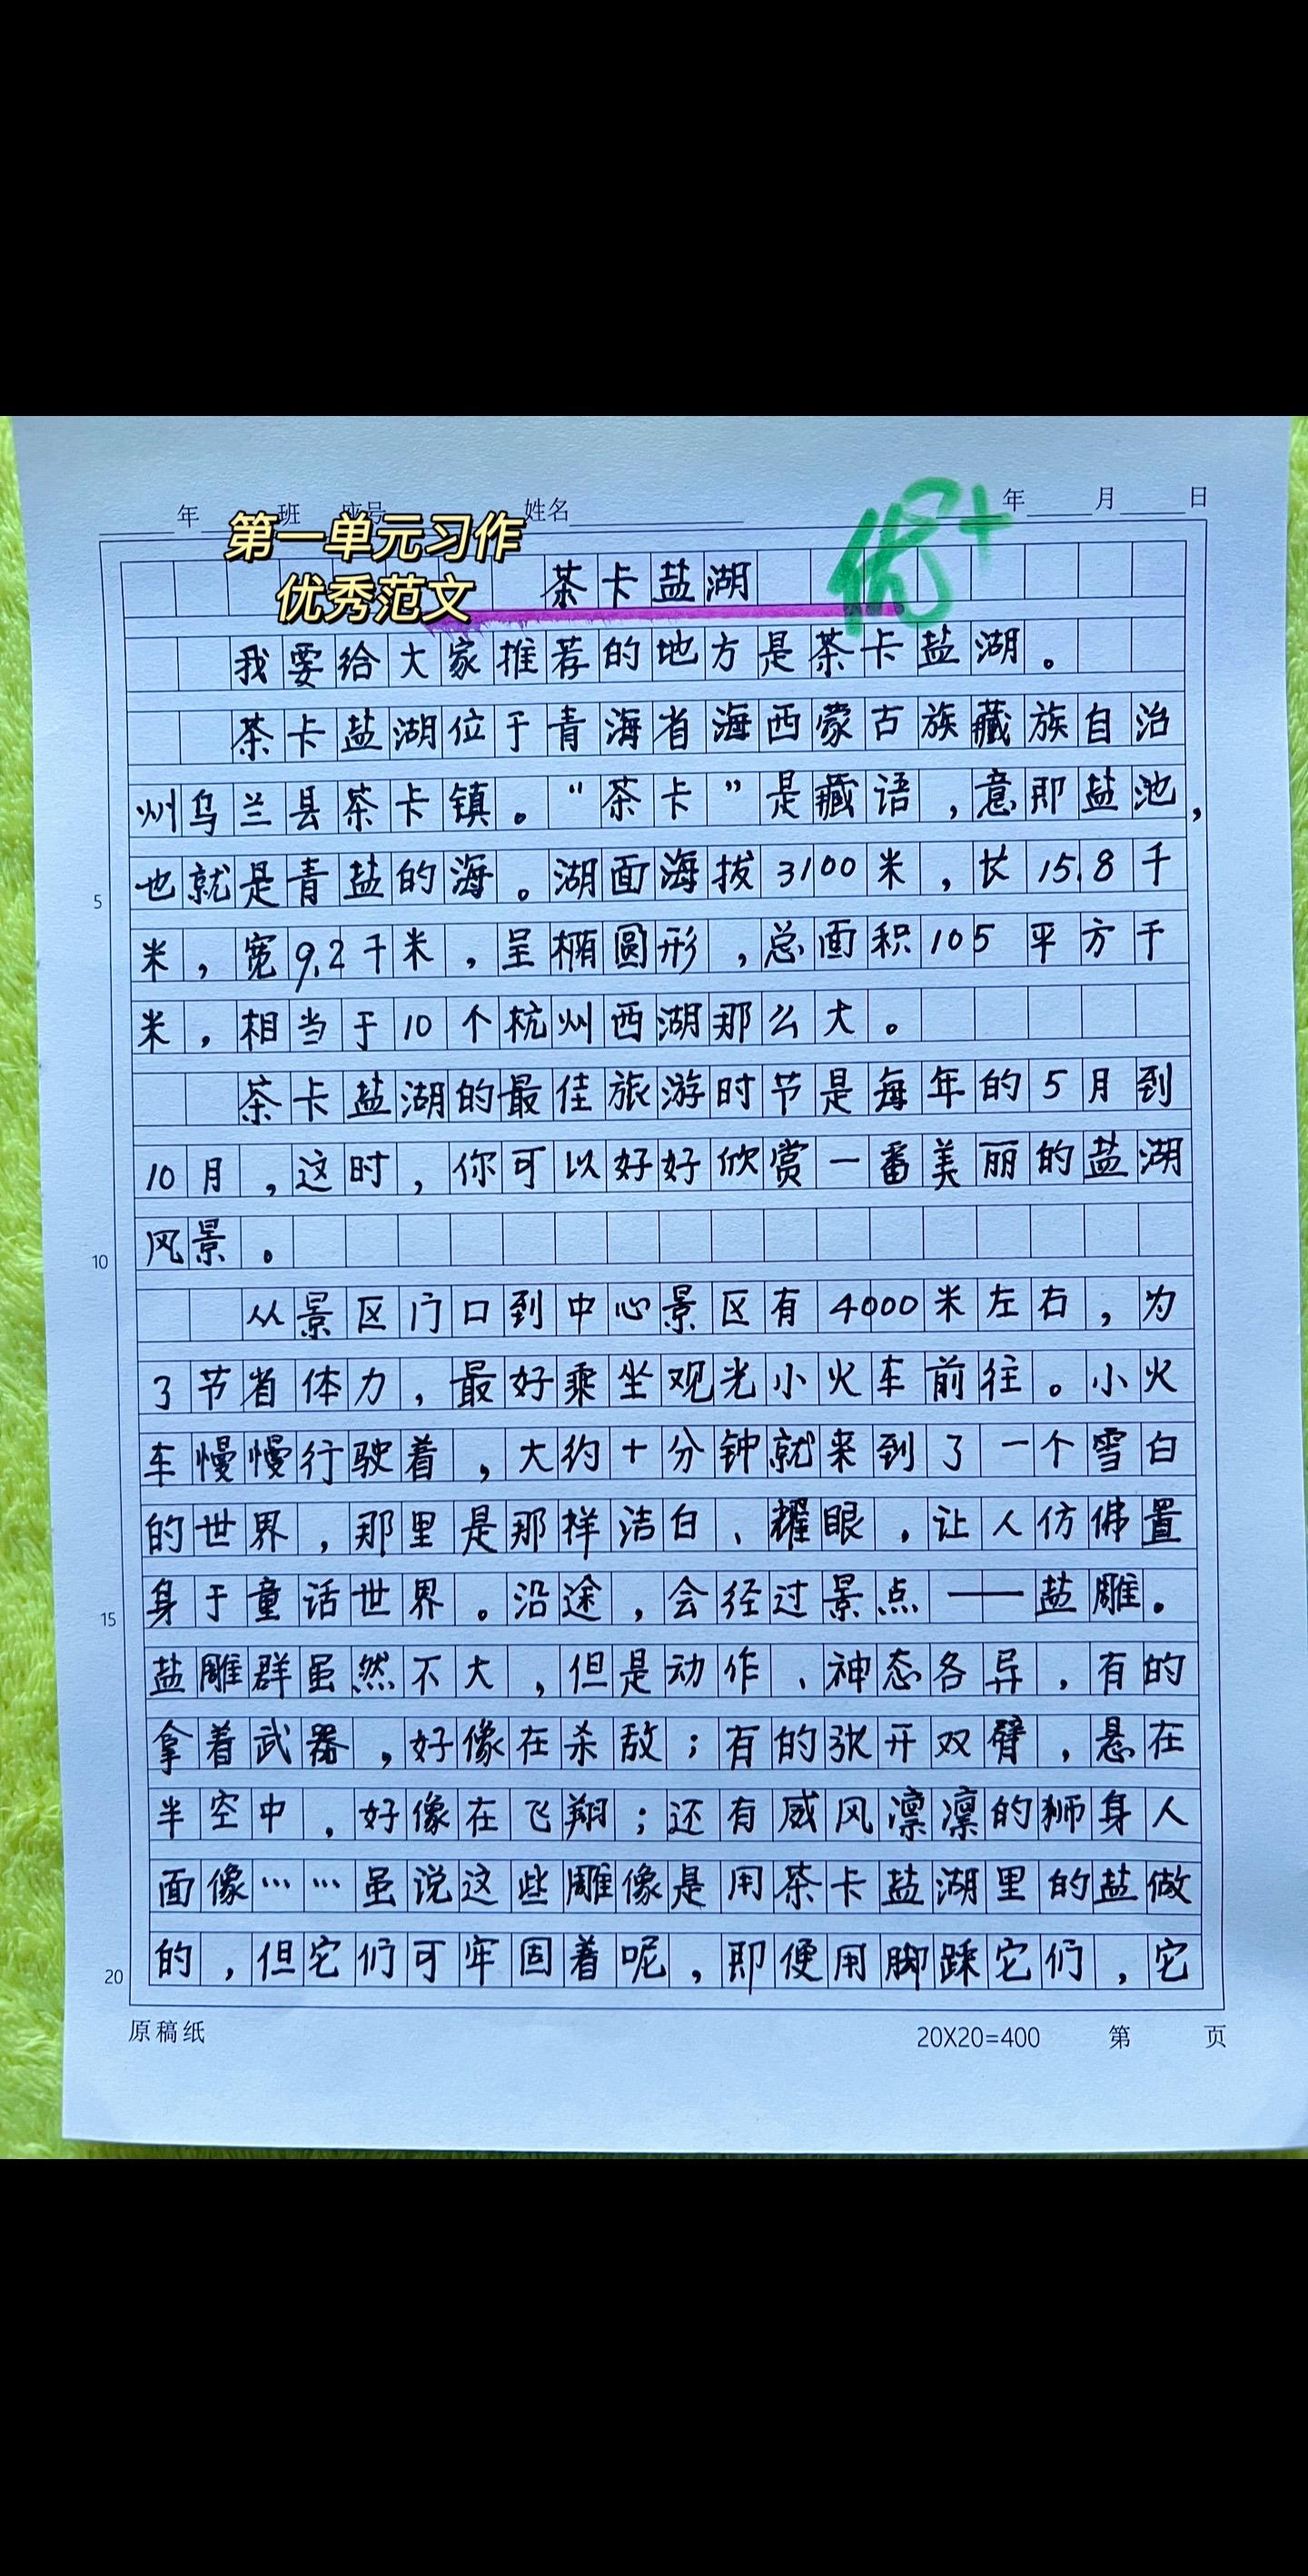 年 班 座号 姓名 年 月 日
第一单元习作
优秀范文
优+
茶卡盐湖
我要给大家推荐的地方是茶卡盐湖。
茶卡盐湖位于青海省海西蒙古族藏族自治
州乌兰县茶卡镇。“茶卡”是藏语，意即盐池，
也就是青盐的海。湖面海拔3100米，长15.8千
5
米，宽9.2千米，呈椭圆形，总面积105平方千
米，相当于10个杭州西湖那么大。
茶卡盐湖的最佳旅游时节是每年的5月到
10月，这时，你可以好好欣赏一番美丽的盐湖
风景。
10
从景区门口到中心景区有4000米左右，为
了节省体力，最好乘坐观光小火车前往。小火
车慢慢行驶着，大约十分钟就来到了一个雪白
的世界，那里是那样洁白、耀眼，让人仿佛置
身于童话世界。沿途，会经过景点——盐雕。
15
盐雕群虽然不大，但是动作、神态各异，有的
拿着武器，好像在杀敌；有的张开双臂，悬在
半空中，好像在飞翔；还有威风凛凛的狮身人
面像……虽说这些雕像是用茶卡盐湖里的盐做
的，但它们可牢固着呢，即便用脚踩它们，它
20
原稿纸 20X20=400 第 页